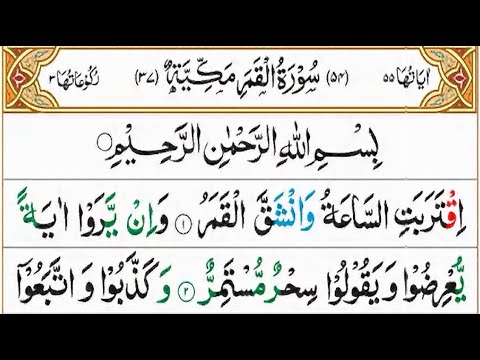 اٰیَاتُهَا ۵۵ (۵۴) سُوْرَةُ الْقَمَرِ مَكِّیَّةٌ (۳۷) رُكُوْعَاتُهَا ۳
بِسْمِ اللّٰهِ الرَّحْمٰنِ الرَّحِیْمِ
اِقْتَرَبَتِ السَّاعَةُ وَانْشَقَّ الْقَمَرُ ۝۱ وَاِنْ یَّرَوْا اٰیَةً
یُّعْرِضُوْا وَیَقُوْلُوْا سِحْرٌ مُّسْتَمِرٌّ ۝۲ وَكَذَّبُوْا وَاتَّبَعُوْۤا